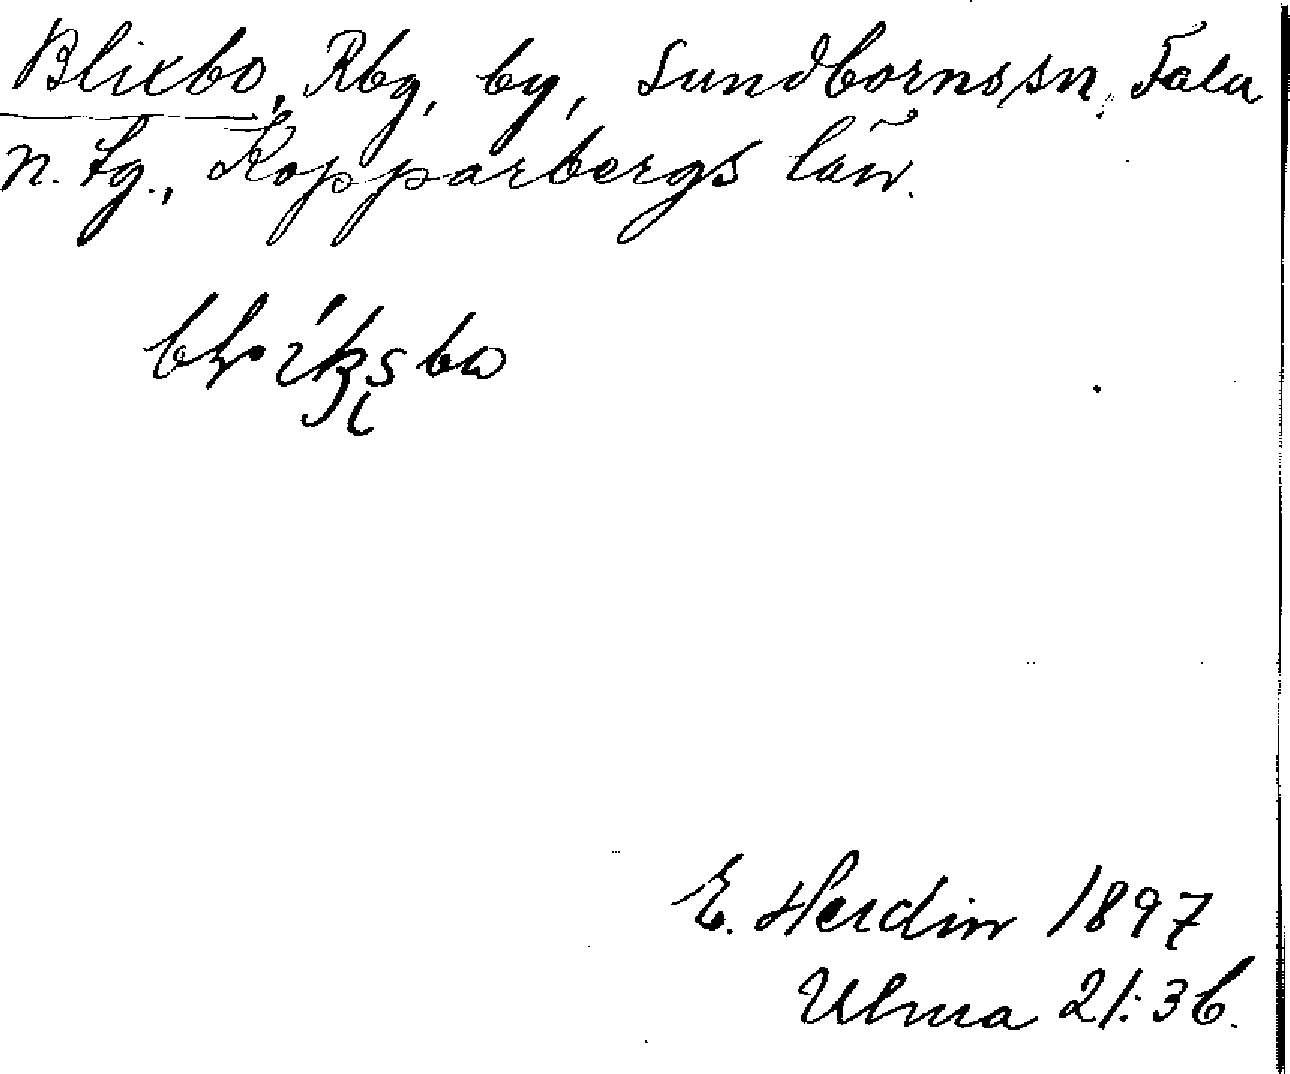 Blixbo, Rbg, by, Sundborns sn, Falu
n. tg., Kopparbergs län.
E. Herdin 1897
Ulma 21:36.